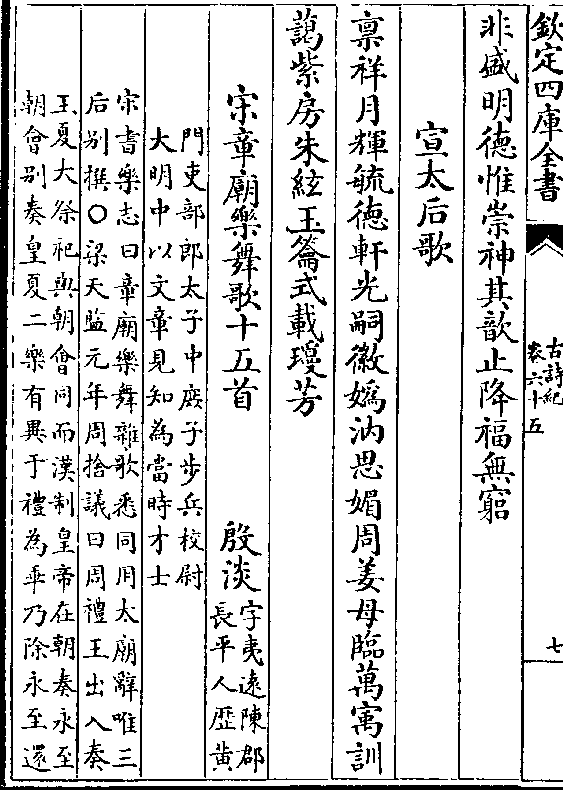 欽定四庫全書
古詩紀
卷六十五
七
非盛明德惟崇神其歆止降福無窮
宣太后歌
禀祥月輝毓德軒光嗣徽媯汭思媚周姜母臨萬㝢訓
藹紫房朱絃玉籥式載瓊芳
宋章廟樂舞歌十五首
殷淡
字夷遠陳郡
長平人歴黄
門吏部郎太子中庶子步兵校尉
大明中以文章見知為當時才士
宋書樂志曰章廟樂舞雜歌悉同用太廟辭唯三
后别撰○梁天監元年周捨議曰周禮王出入奏
王夏大祭祀與朝會同而漢制皇帝在朝奏永至
朝會别奏皇夏二樂有異于禮為乖乃除永至還